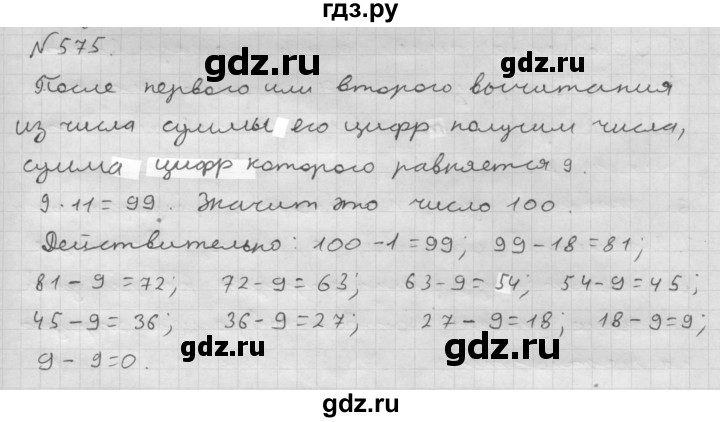 гдз.ру
№575.
После первого или второго вычитания
из числа суммы его цифр получим числа,
сумма цифр которого равняется 9.
9·11=99. Значит это число 100.
Действительно: 100-1=99; 99-18=81;
81-9=72; 72-9=63; 63-9=54; 54-9=45;
45-9=36; 36-9=27; 27-9=18; 18-9=9;
9-9=0.
gdz.ru
gdz.ru
gdz.ru
gdz.ru
gdz.ru
gdz.ru
gdz.ru
gdz.ru